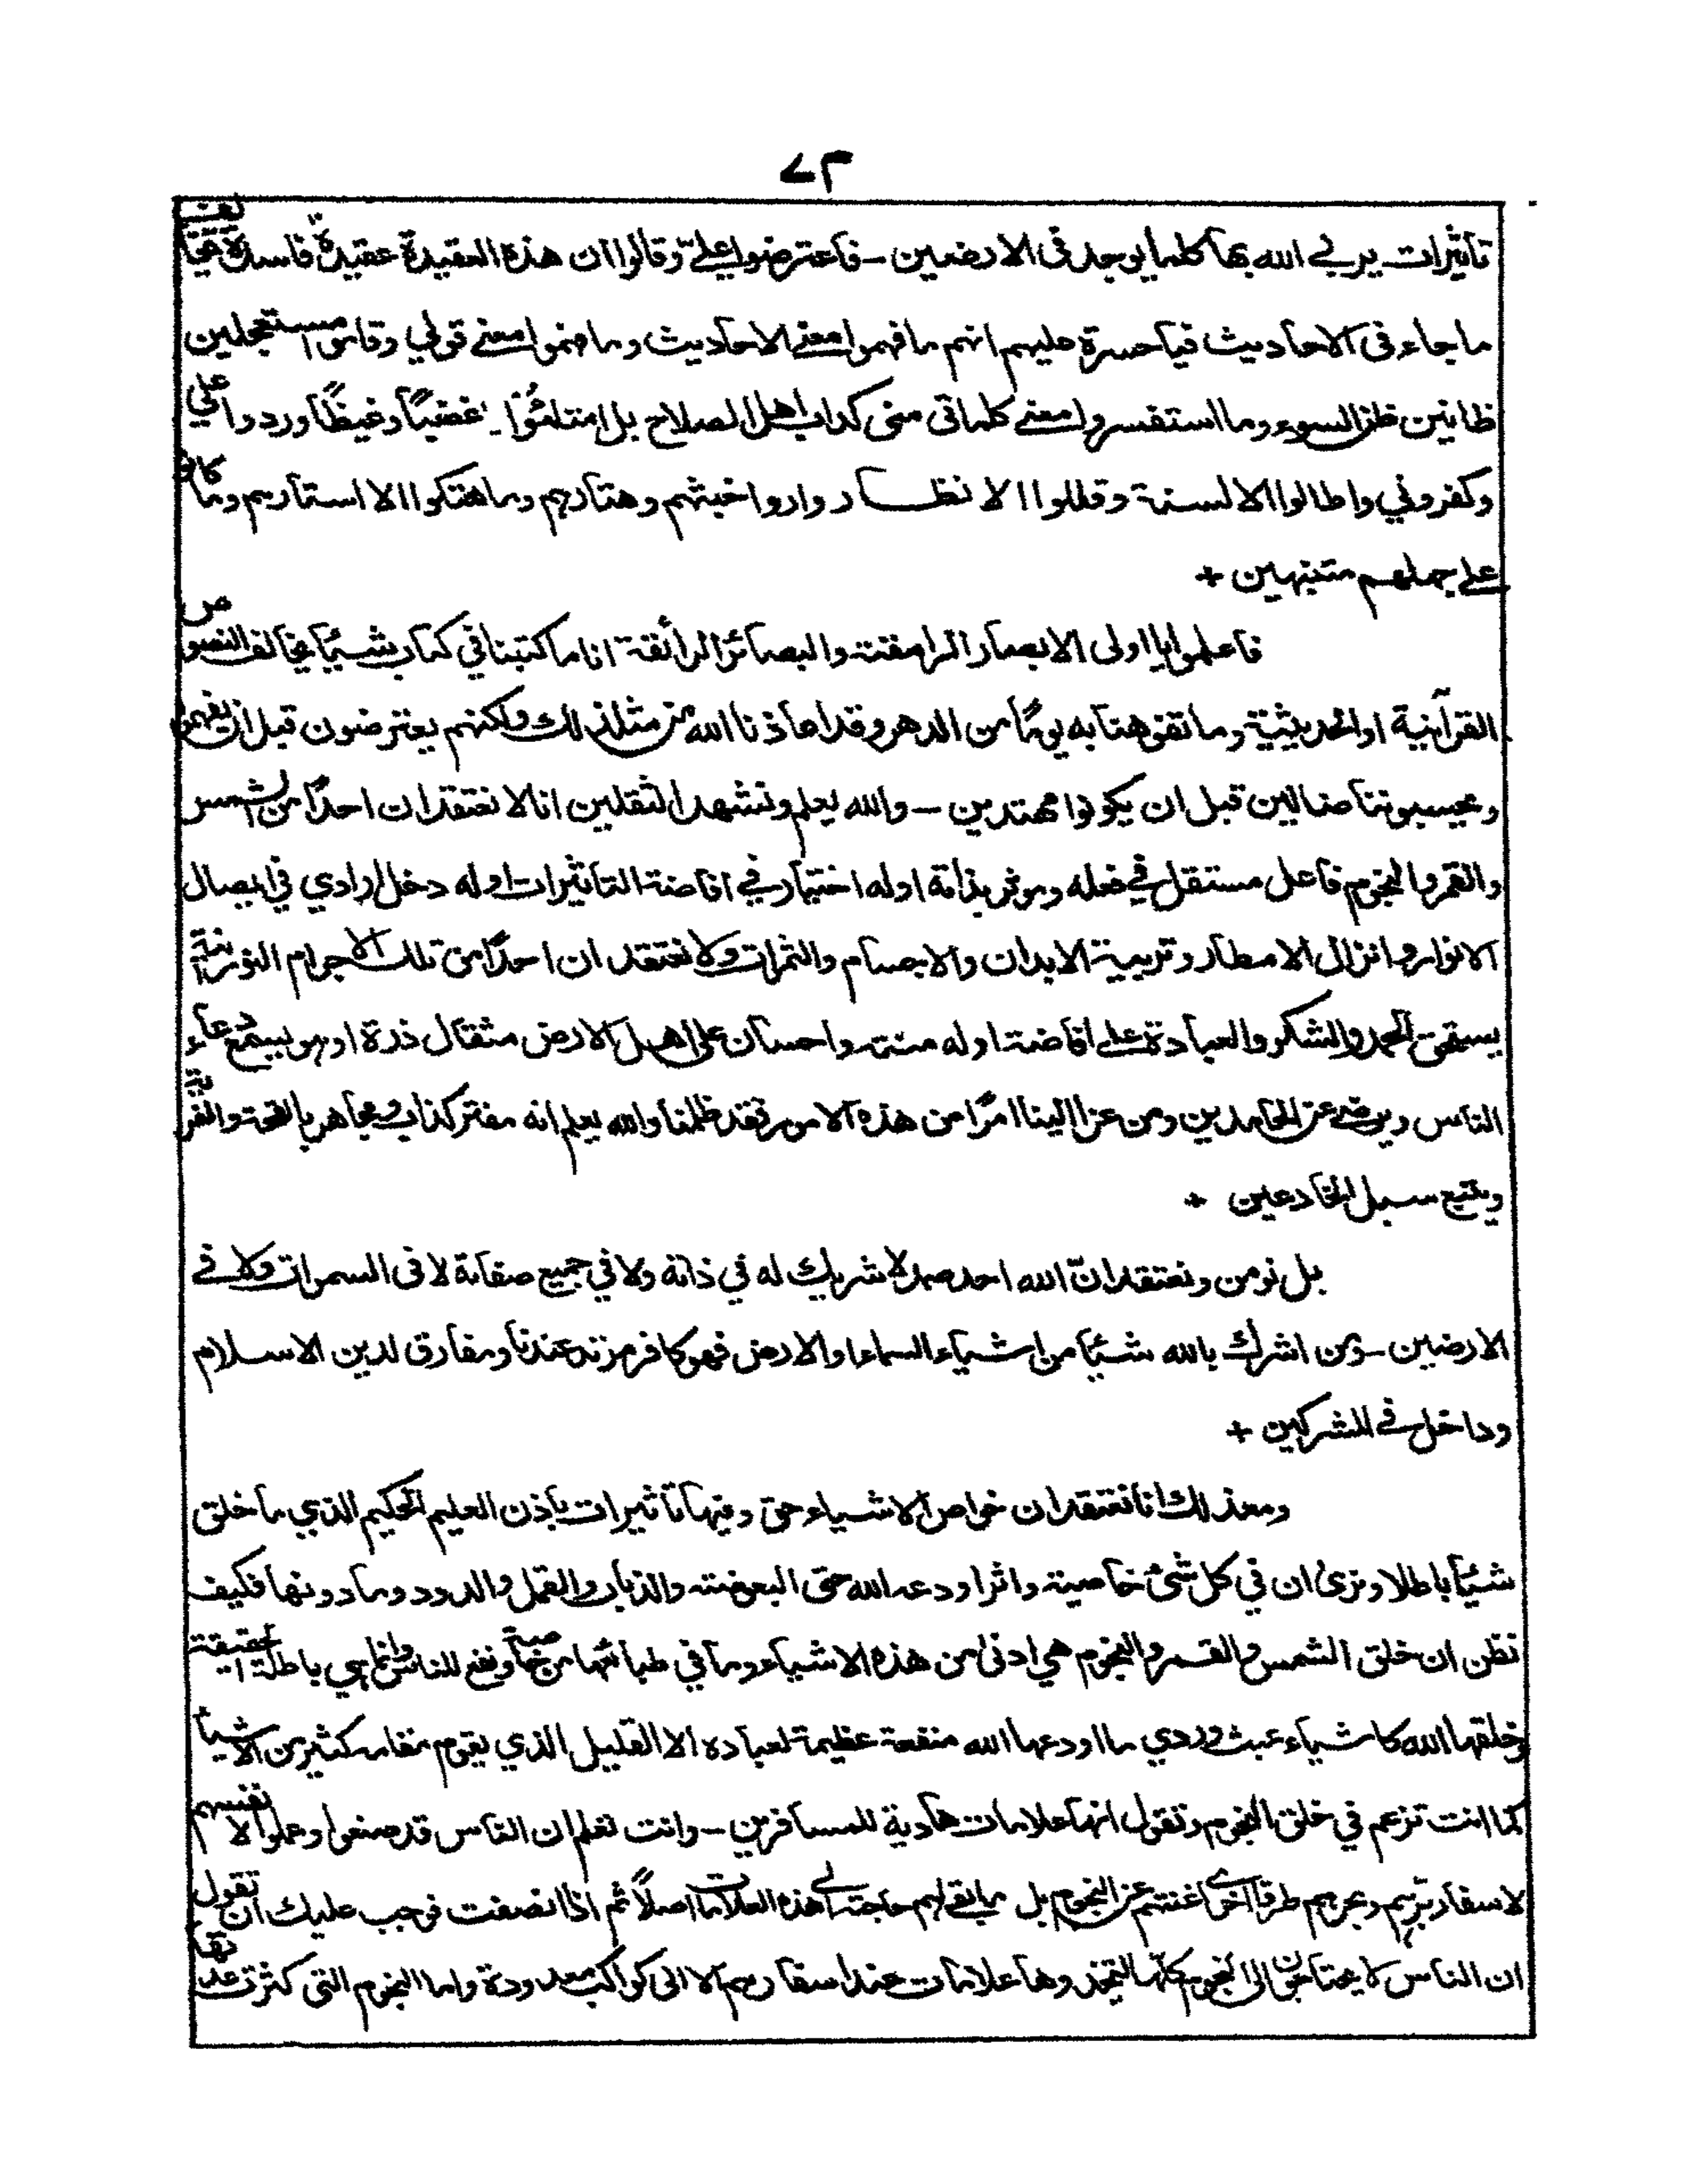 ٧٣
تأثيرات يربي الله بها كلما يوجد فى الارضين - فاعترضوا علىّ وقالوا ان هذه العقيدة عقيدة فاسدة يخالف
ما جاء فى الاحاديث فيا حسرة عليهم انهم ما فهموا معنے الاحاديث وما فهموا معنے قولي وقاموا مستعجلين
ظانين ظن السوء وما استفسروا معنے كلماتى منى كداب اهل الصلاح بل امتلئوا غضبًا وغيظًا وردوا علي
وكفروني واطالوا الالسنة وقللوا الانظار واروا خبثهم وهتارهم وما هتكوا الا استارهم وما كانوا
علے جهلهم متنبهين +
فاعلموا يا اولى الابصار الرامقة والبصائر الرائقة انا ما كتبنا في كتاب شيئًا يخالف النصوص
القرآنية او الحديثية وما تفوهنا به يومًا من الدهر وقد اعاذنا الله من مثل ذلك ولكنهم يعترضون قبل ان يفهموا
ويحسبوننا ضالين قبل ان يكونوا مهتدين - والله يعلم ونشهد الثقلين انا لا نعتقد ان احدًا من الشمس
والقمر والنجوم فاعل مستقل في فعله وموثر بذاته او له اختيار في افاضة التاثيرات او له دخل ارادي في ايصال
الانوار وانزال الامطار وتربية الابدان والاجسام والثمرات ولا نعتقد ان احدًا من تلك الاجرام النورانية
يستحق الحمد والشكر والعبادة علے افاضته او له منته واحسان على اهل الارض مثقال ذرة او هو يسمع دعاء
الناس ويرضى عن الحامدين ومن عزا الينا امرًا من هذه الامور فقد ظلمنا والله يعلم انه مفتر كذاب ومجاهر بالقحة والفرية
ويتبع سبل الخادعين +
بل نومن ونعتقد انّ الله احد صمد لا شريك له في ذاته ولا في جميع صفاته لا فى السموات ولا في
الارضين - ومن اشرك بالله شيئًا من اشياء السماء او الارض فهو كافر مرتد عندنا ومفارق لدين الاسلام
وداخل في المشركين +
ومع ذلك انا نعتقد ان خواص الاشياء حق وفيها تاثيرات باذن العليم الحكيم الذي ما خلق
شيئًا باطلا ونرى ان في كل شئ خاصية واثرا ودعه الله حتى البعوضة والذباب والقمل والدود وما دونها فكيف
نظن ان خلق الشمس والقمر والنجوم هي ادنى من هذه الاشياء وما في طبائعها من خاصية ونفع للناس وانما هي باطلة الحقيقة
وخلقها الله كاشياء عبث وردي ما اودعها الله منفعة عظيمة لعباده الا القليل الذي يقوم مقامه كثير من الاشياء
كما انت تزعم في خلق النجوم وتقول انها علامات هادية للمسافرين - وانت تعلم ان الناس قد صنعوا وعملوا لانفسهم
لاسفار برهم وبحرهم طرقا اخرى اغنتهم عن النجوم بل ما بقے لهم حاجة الى هذه العلامات اصلاً ثم اذا انصفت فوجب عليك ان تقول
ان الناس لا يحتاجون الى النجوم كلها ليتخذوها علامات عند اسفارهم الا الى كواكب معدودة واما النجوم التى كثرت عدتها